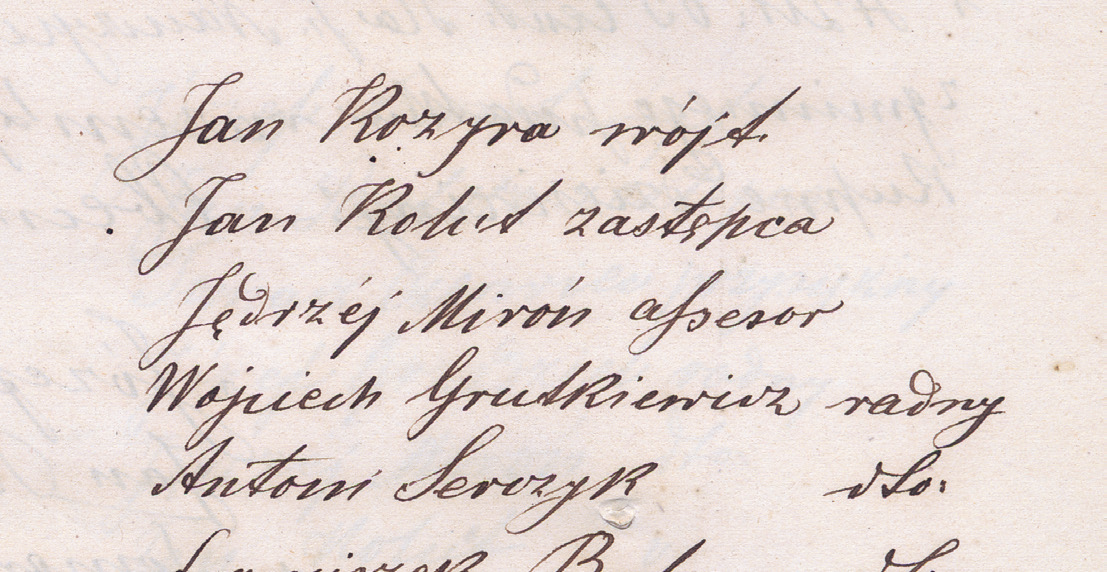 Jan Kozyra wójt
Jan Kolut zastępca
Jędrzéj Miroń assesor
Wojciech Grutkiewicz radny
Antoni Serczyk dto: